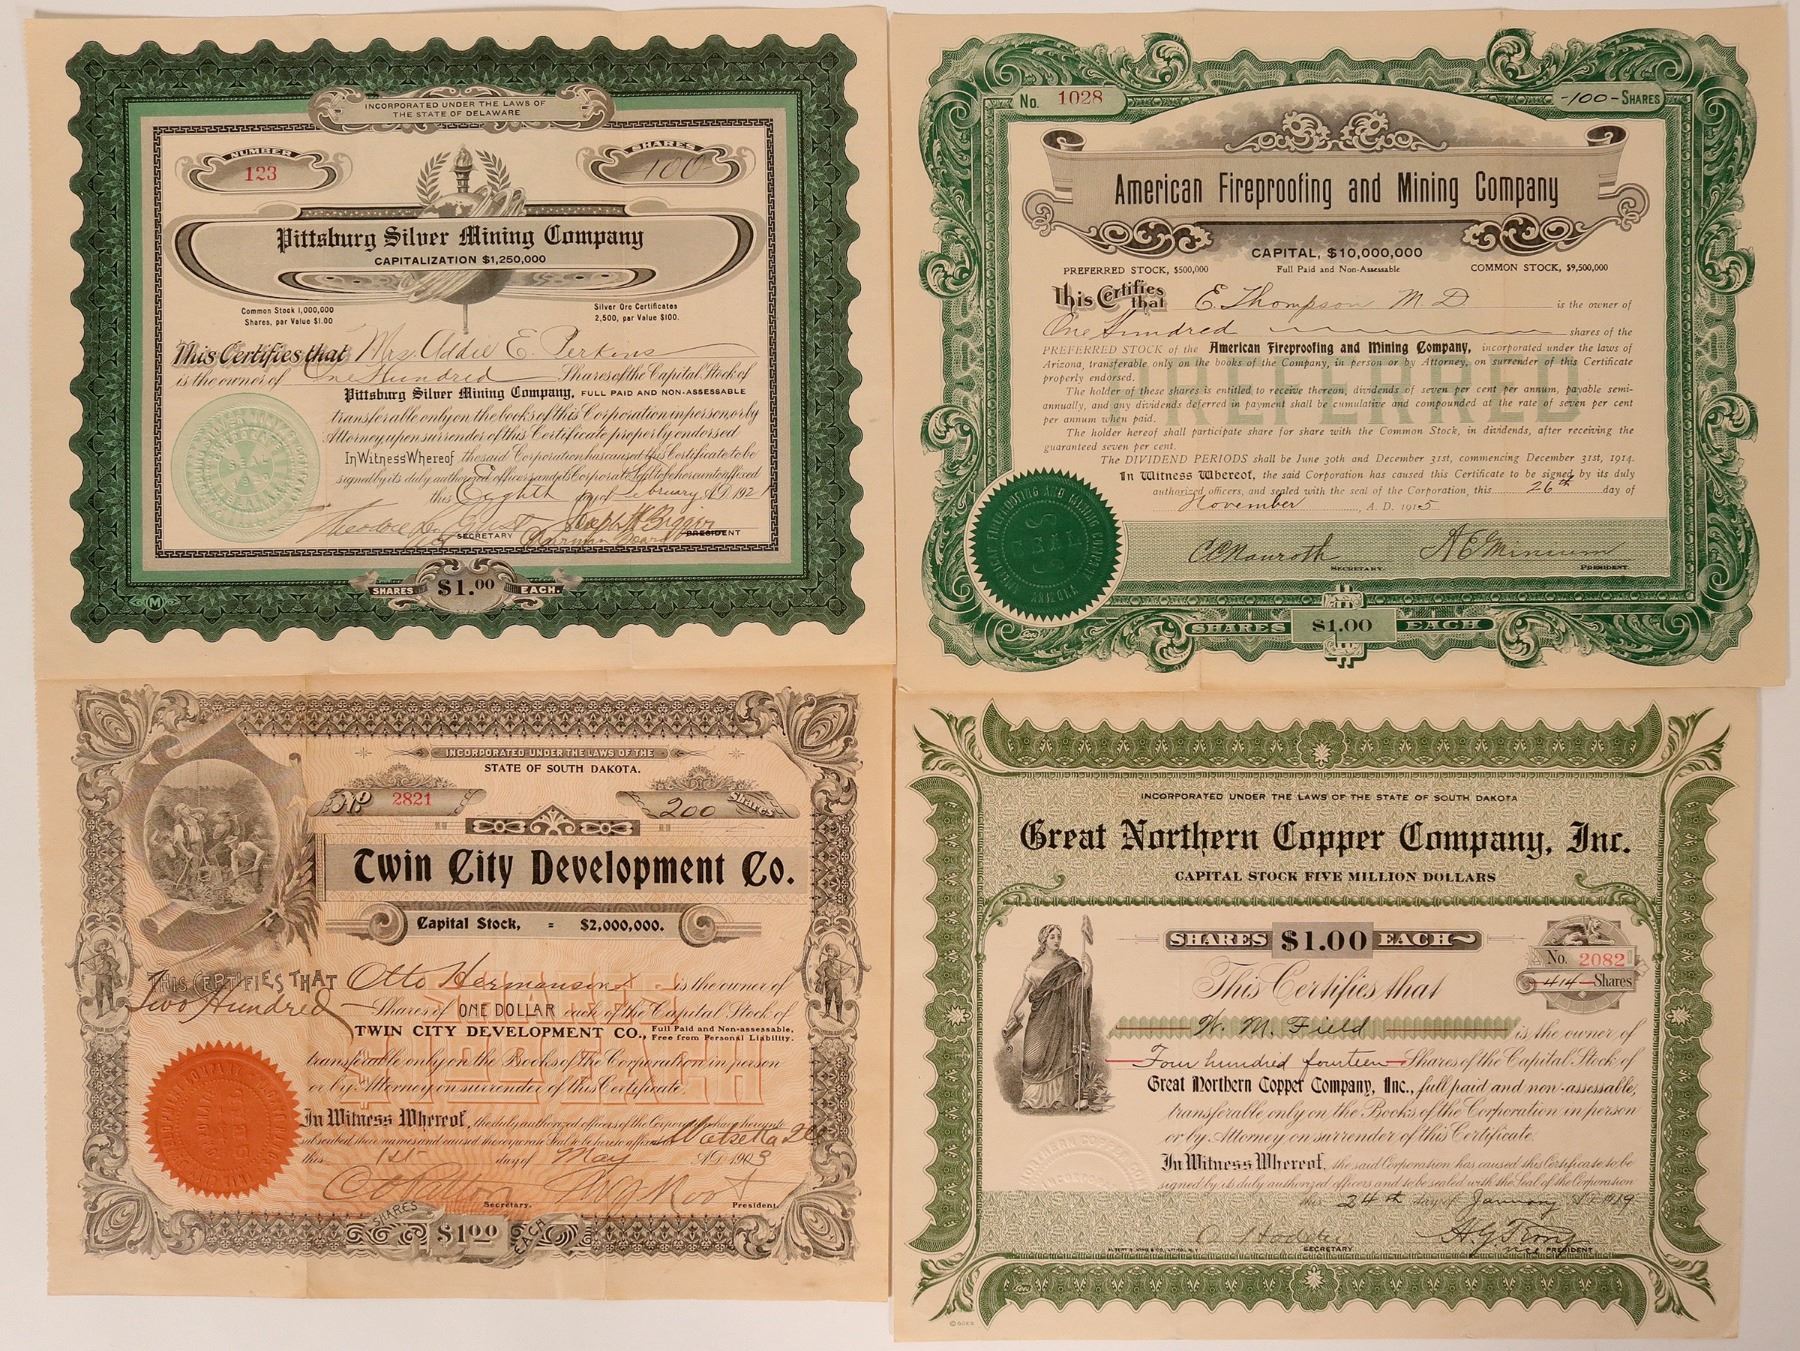 INCORPORATED UNDER THE LAWS OF
THE STATE OF DELAWARE
NUMBER
123
SHARES
100
Pittsburg Silver Mining Company
CAPITALIZATION $1,250,000
Common Stock 1,000,000
Shares, par Value $1.00
Silver Ore Certificates
2,500, par Value $100.
This Certifies that Mrs. Addie E. Perkins
is the owner of One Hundred Shares of the Capital Stock of
Pittsburg Silver Mining Company, FULL PAID AND NON-ASSESSABLE
transferable only on the books of this Corporation in person or by
Attorney upon surrender of this Certificate properly endorsed
In Witness Whereof the said Corporation has caused this Certificate to be
signed by its duly authorized officers and its Corporate Seal to be hereunto affixed
this Eighth day of February A.D. 1921
SECRETARY
Chairman Board PRESIDENT
SHARES $1.00 EACH.
M
No. 1028
-100- SHARES
American Fireproofing and Mining Company
CAPITAL, $10,000,000
PREFERRED STOCK, $500,000 Full Paid and Non-Assessable COMMON STOCK, $9,500,000
This Certifies that E. Thompson M D is the owner of
One Hundred shares of the
PREFERRED STOCK of the American Fireproofing and Mining Company, incorporated under the laws of
Arizona, transferable only on the books of the Company, in person or by Attorney, on surrender of this Certificate
properly endorsed.
The holder of these shares is entitled to receive thereon, dividends of seven per cent per annum, payable semi-
annually, and any dividends deferred in payment shall be cumulative and compounded at the rate of seven per cent
per annum when paid.
The holder hereof shall participate share for share with the Common Stock, in dividends, after receiving the
guaranteed seven per cent.
The DIVIDEND PERIODS shall be June 30th and December 31st, commencing December 31st, 1914.
In Witness Whereof, the said Corporation has caused this Certificate to be signed by its duly
authorized officers, and sealed with the seal of the Corporation, this 26th day of
November, A. D. 1915
PREFERRED
AMERICAN FIREPROOFING AND MINING COMPANY
SEAL
ARIZONA
SECRETARY.
A E Minium
PRESIDENT.
SHARES $1.00 EACH
INCORPORATED UNDER THE LAWS OF THE
STATE OF SOUTH DAKOTA.
No 2821
200 Shares
Twin City Development Co.
Capital Stock, = $2,000,000.
THIS CERTIFIES THAT Otto Hermansen is the owner of
Two Hundred Shares of ONE DOLLAR each of the Capital Stock of
TWIN CITY DEVELOPMENT CO., Full Paid and Non-assessable,
Free from Personal Liability.
transferable only on the Books of The Corporation in person
or by Attorney on surrender of this Certificate.
In Witness Whereof, the duly authorized officers of the Corporation have hereunto
subscribed their names and caused the corporate Seal to be hereto affixed at Watseka Ill
this 1st day of May A.D. 1903
SHARES
$1 EACH
Secretary.
President.
SHARES $1.00 EACH
INCORPORATED UNDER THE LAWS OF THE STATE OF SOUTH DAKOTA
Great Northern Copper Company, Inc.
CAPITAL STOCK FIVE MILLION DOLLARS
SHARES $1.00 EACH
No. 2082
414 Shares
This Certifies that
W. M. Field is the owner of
Four hundred fourteen Shares of the Capital Stock of
Great Northern Copper Company, Inc., full paid and non-assessable,
transferable only on the Books of the Corporation in person
or by Attorney on surrender of this Certificate.
In Witness Whereof, the said Corporation has caused this Certificate to be
signed by its duly authorized officers and to be sealed with the Seal of the Corporation
this 24th day of January A.D. 1919
SECRETARY
vice PRESIDENT
©GOES